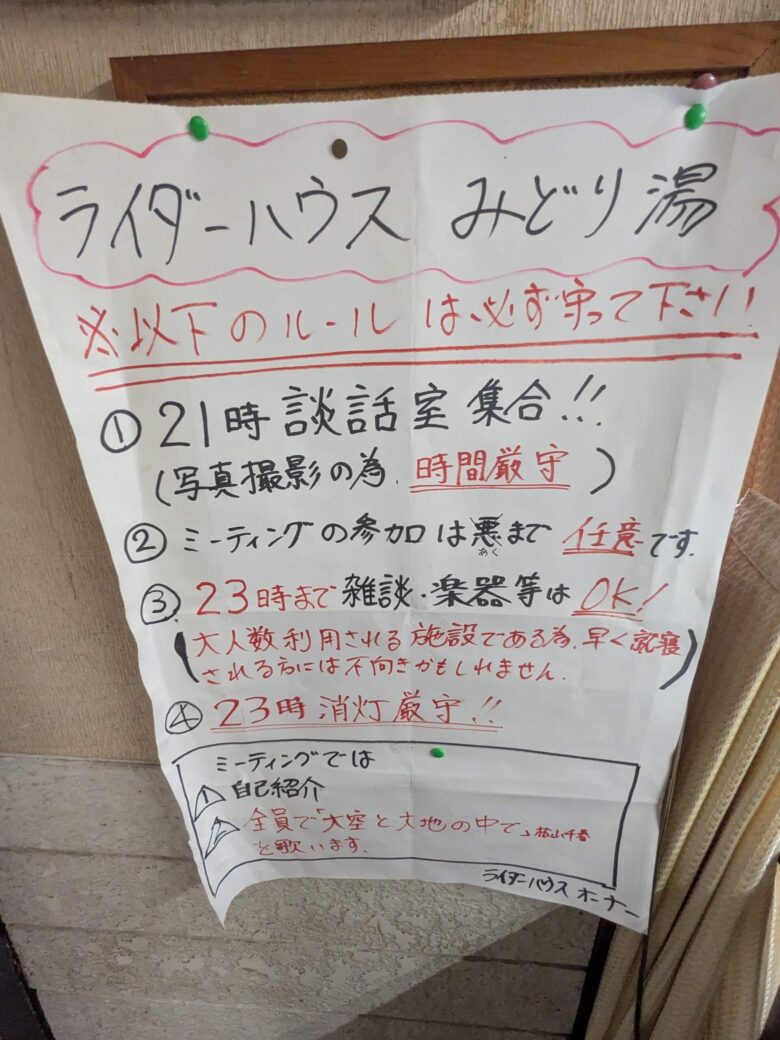 ライダーハウス みどり湯
※以下のルールは必ず守って下さい!
① 21時 談話室 集合!!
(写真撮影の為、時間厳守)
② ミーティングの参加は悪まで 任意です.
あく
③ 23時まで 雑談・楽器等は OK!
(大人数利用される施設である為、早く就寝
される方には不向きかもしれません.)
④ 23時 消灯厳守!!
ミーティングでは
1 自己紹介
2 全員で「大空と大地の中で」松山千春
を歌います.
ライダーハウス オーナー